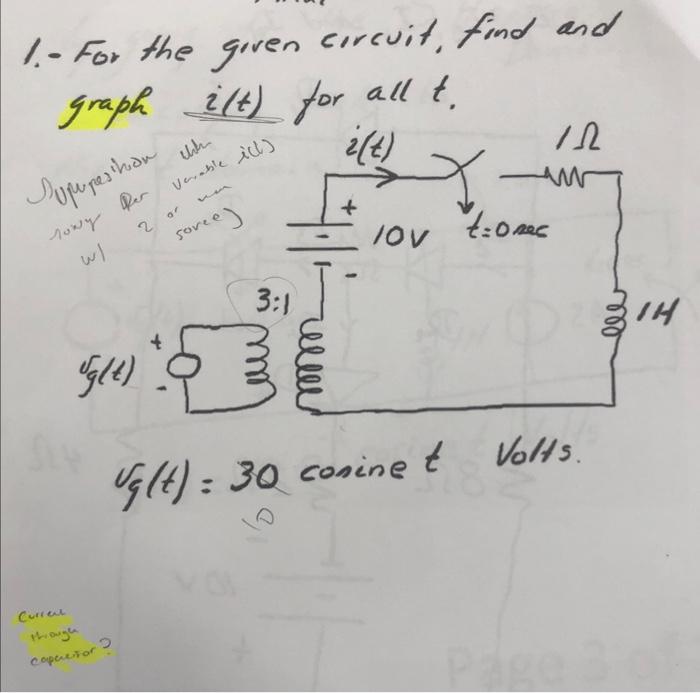 1.- For the given circuit, find and
graph i(t) for all t.
Superposition
variable i(t)
w/ 2 or
i(t)
1Ω
+
10V
-
t=0 sec
3:1
1H
+
vg(t)
-
vg(t) = 30 cosine t Volts.
10
Current
through
capacitor?
Page 3 of